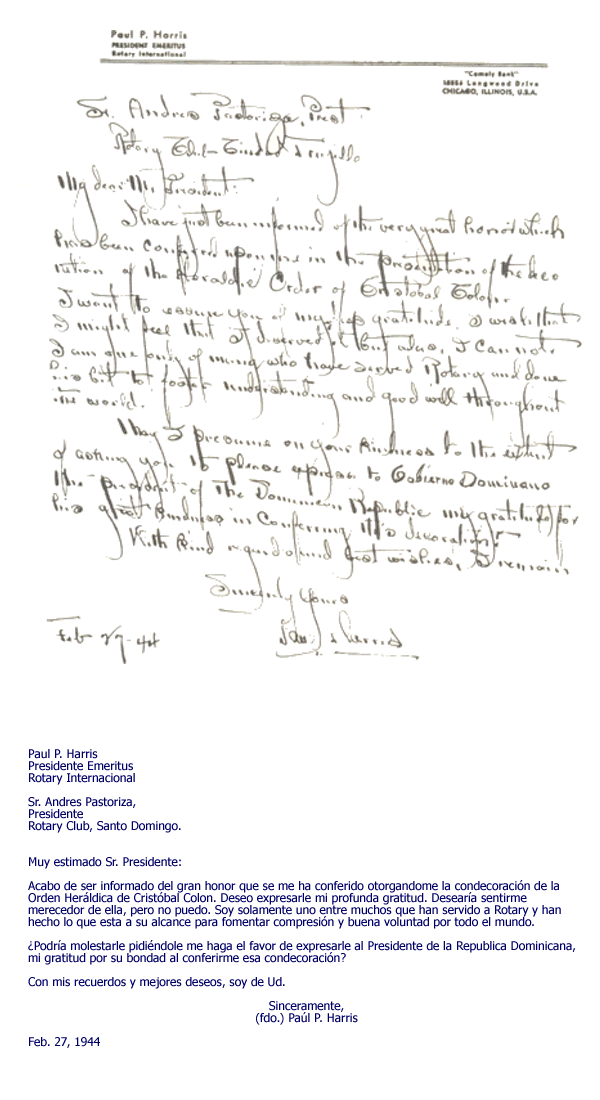 Paul P. Harris
PRESIDENT EMERITUS
Rotary International
"Comely Bank"
10856 Longwood Drive
CHICAGO, ILLINOIS, U.S.A.
Sr. Andres Pastoriza, Prest
Rotary Club Ciudad Trujillo
My dear Mr. President:
I have just been informed of the very great honor which
has been conferred upon me in the presentation of the deco
ration of the Heraldic Order of Cristobal Colon.
I want to assure you of my deep gratitude. I wish that
I might feel that I deserved it but alas, I can not.
I am one only of many who have served Rotary and done
his bit to foster understanding and good will throughout
the world.
May I presume on your kindness to the extent
of asking you to please express to Gobierno Dominicano
the president of the Dominican Republic my gratitude for
his great kindness in conferring this decoration?
With kind regards and best wishes, I remain
Sincerely Yours
Paul P. Harris
Feb 27-44
Paul P. Harris
Presidente Emeritus
Rotary Internacional
Sr. Andres Pastoriza,
Presidente
Rotary Club, Santo Domingo.
Muy estimado Sr. Presidente:
Acabo de ser informado del gran honor que se me ha conferido otorgandome la condecoración de la
Orden Heráldica de Cristóbal Colon. Deseo expresarle mi profunda gratitud. Desearía sentirme
merecedor de ella, pero no puedo. Soy solamente uno entre muchos que han servido a Rotary y han
hecho lo que esta a su alcance para fomentar compresión y buena voluntad por todo el mundo.
¿Podría molestarle pidiéndole me haga el favor de expresarle al Presidente de la Republica Dominicana,
mi gratitud por su bondad al conferirme esa condecoración?
Con mis recuerdos y mejores deseos, soy de Ud.
Sinceramente,
(fdo.) Paúl P. Harris
Feb. 27, 1944